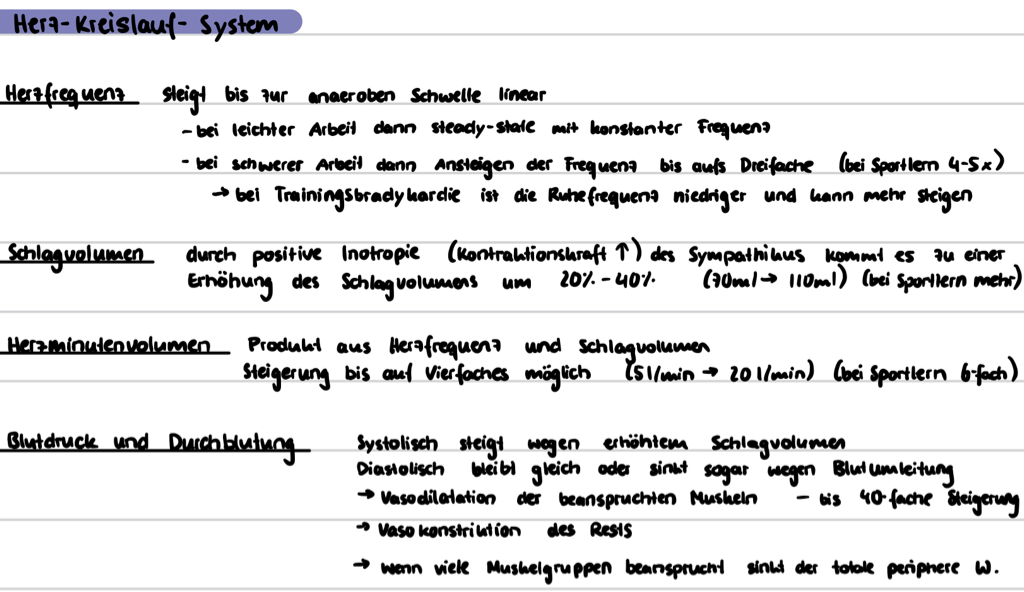 Herz-Kreislauf-System
Herzfrequenz steigt bis zur anaeroben Schwelle linear
- bei leichter Arbeit dann steady-state mit konstanter Frequenz
- bei schwerer Arbeit dann Ansteigen der Frequenz bis aufs Dreifache (bei Sportlern 4-5x)
→ bei Trainingsbradykardie ist die Ruhefrequenz niedriger und kann mehr steigen
Schlagvolumen durch positive Inotropie (Kontraktionskraft ↑) des Sympathikus kommt es zu einer
Erhöhung des Schlagvolumens um 20% - 40% (70ml → 110ml) (bei Sportlern mehr)
Herzminutenvolumen Produkt aus Herzfrequenz und Schlagvolumen
Steigerung bis auf Vierfaches möglich (5l/min → 20l/min) (bei Sportlern 6-fach)
Blutdruck und Durchblutung Systolisch steigt wegen erhöhtem Schlagvolumen
Diastolisch bleibt gleich oder sinkt sogar wegen Blutumleitung
→ Vasodilatation der beanspruchten Muskeln - bis 40-fache Steigerung
→ Vasokonstriktion des Rests
→ wenn viele Muskelgruppen beansprucht sinkt der totale periphere W.